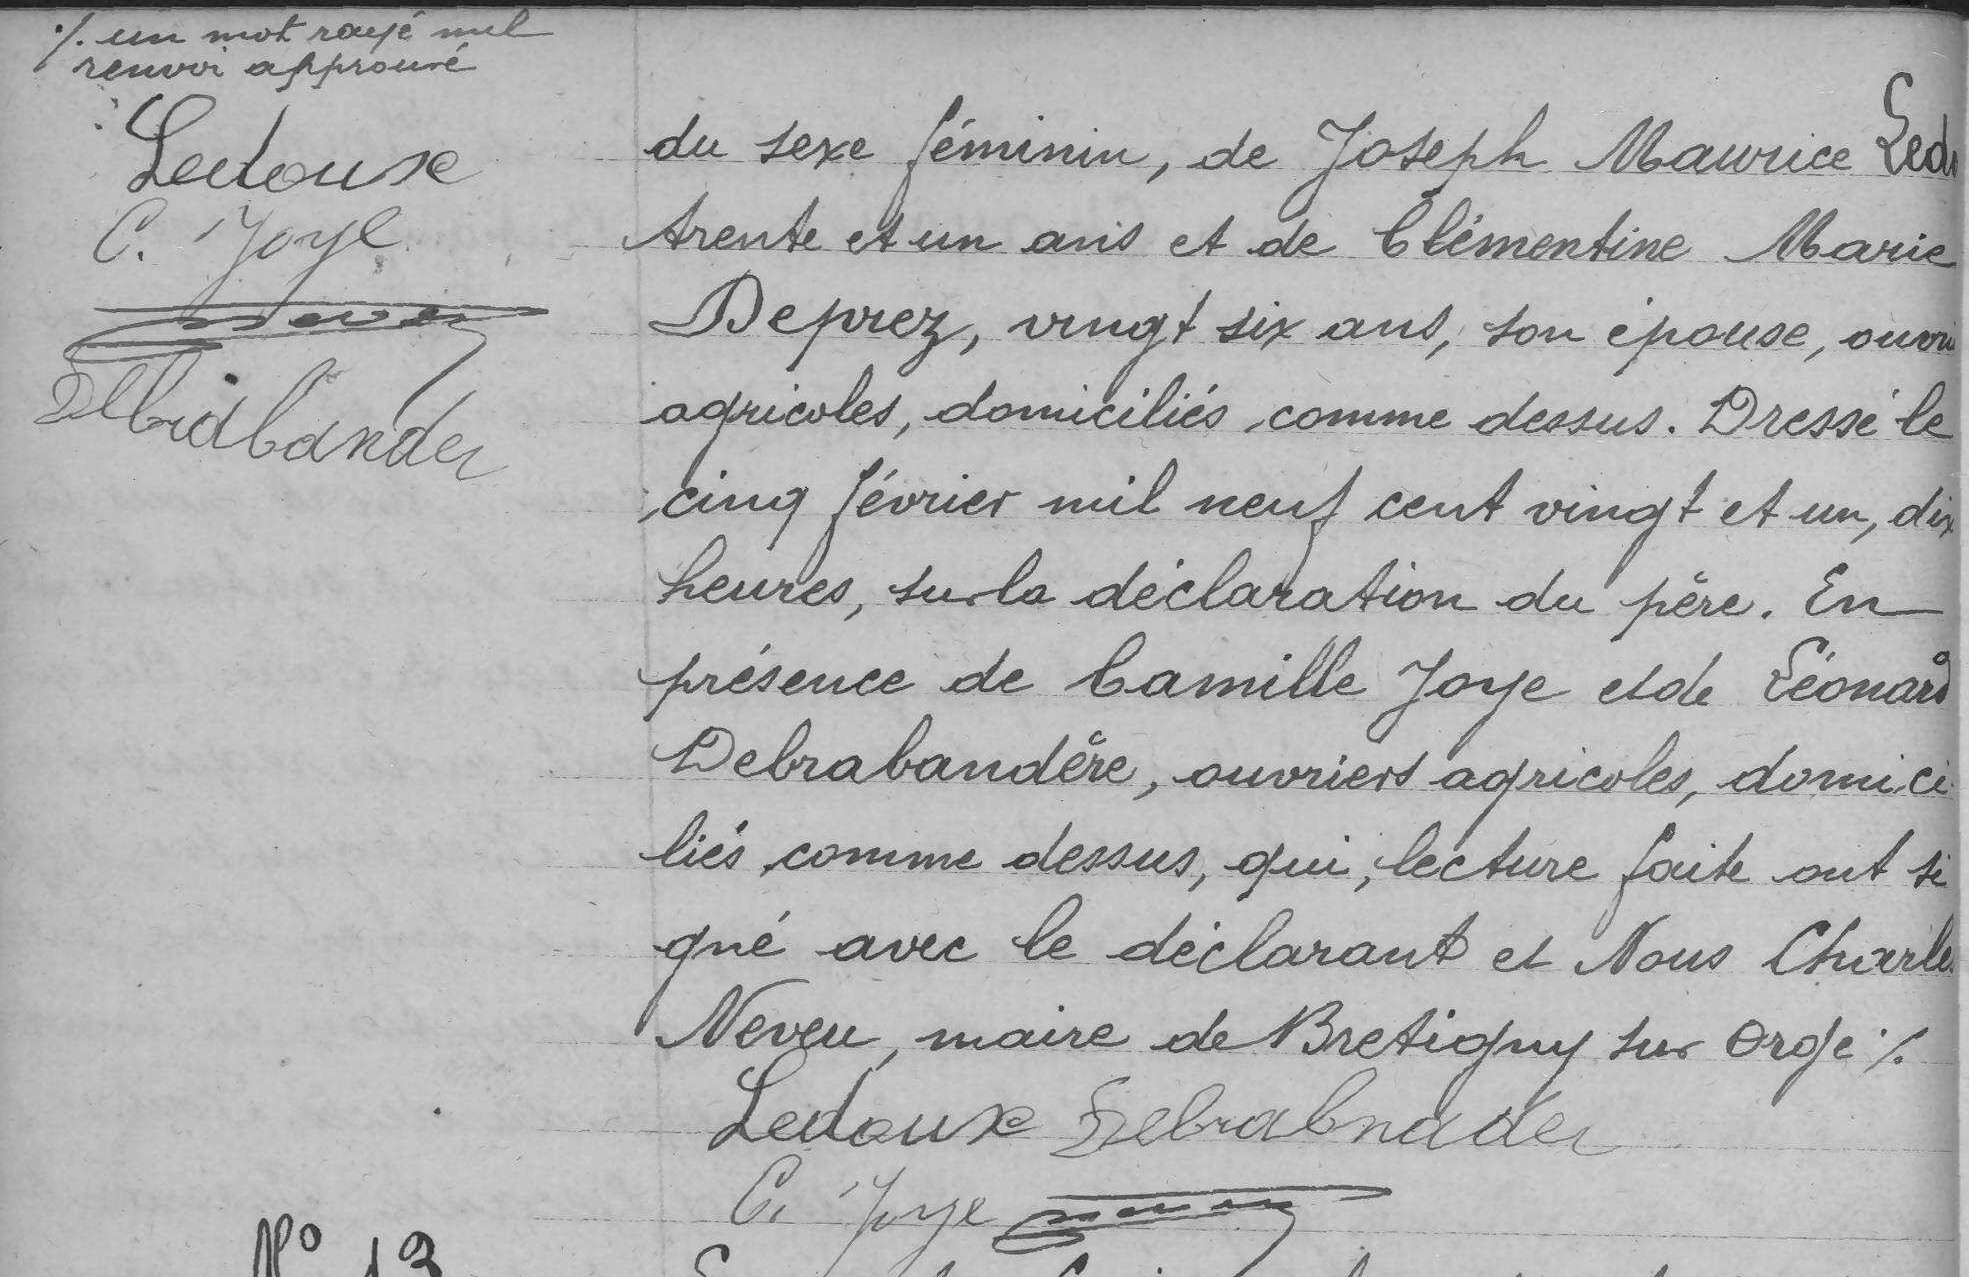 ·/. un mot rayé nul
renvoi approuvé
Ledoux
C. Joye
Neveu
Debrabander
du sexe féminin, de Joseph Maurice Led
trente et un ans et de Clémentine Marie
Deprez, vingt six ans, son épouse, ouvri
agricoles, domiciliés comme dessus. Dressé le
cinq février mil neuf cent vingt et un, dix
heures, sur la déclaration du père. En
présence de Camille Joye et de Léonard
Debrabandère, ouvriers agricoles, domici-
liés comme dessus, qui, lecture faite ont si
gné avec le déclarant et Nous Charles
Neveu, maire de Bretigny sur Orge ·/.
Ledoux Debrabnader
C. Joye Neveu
N° 13